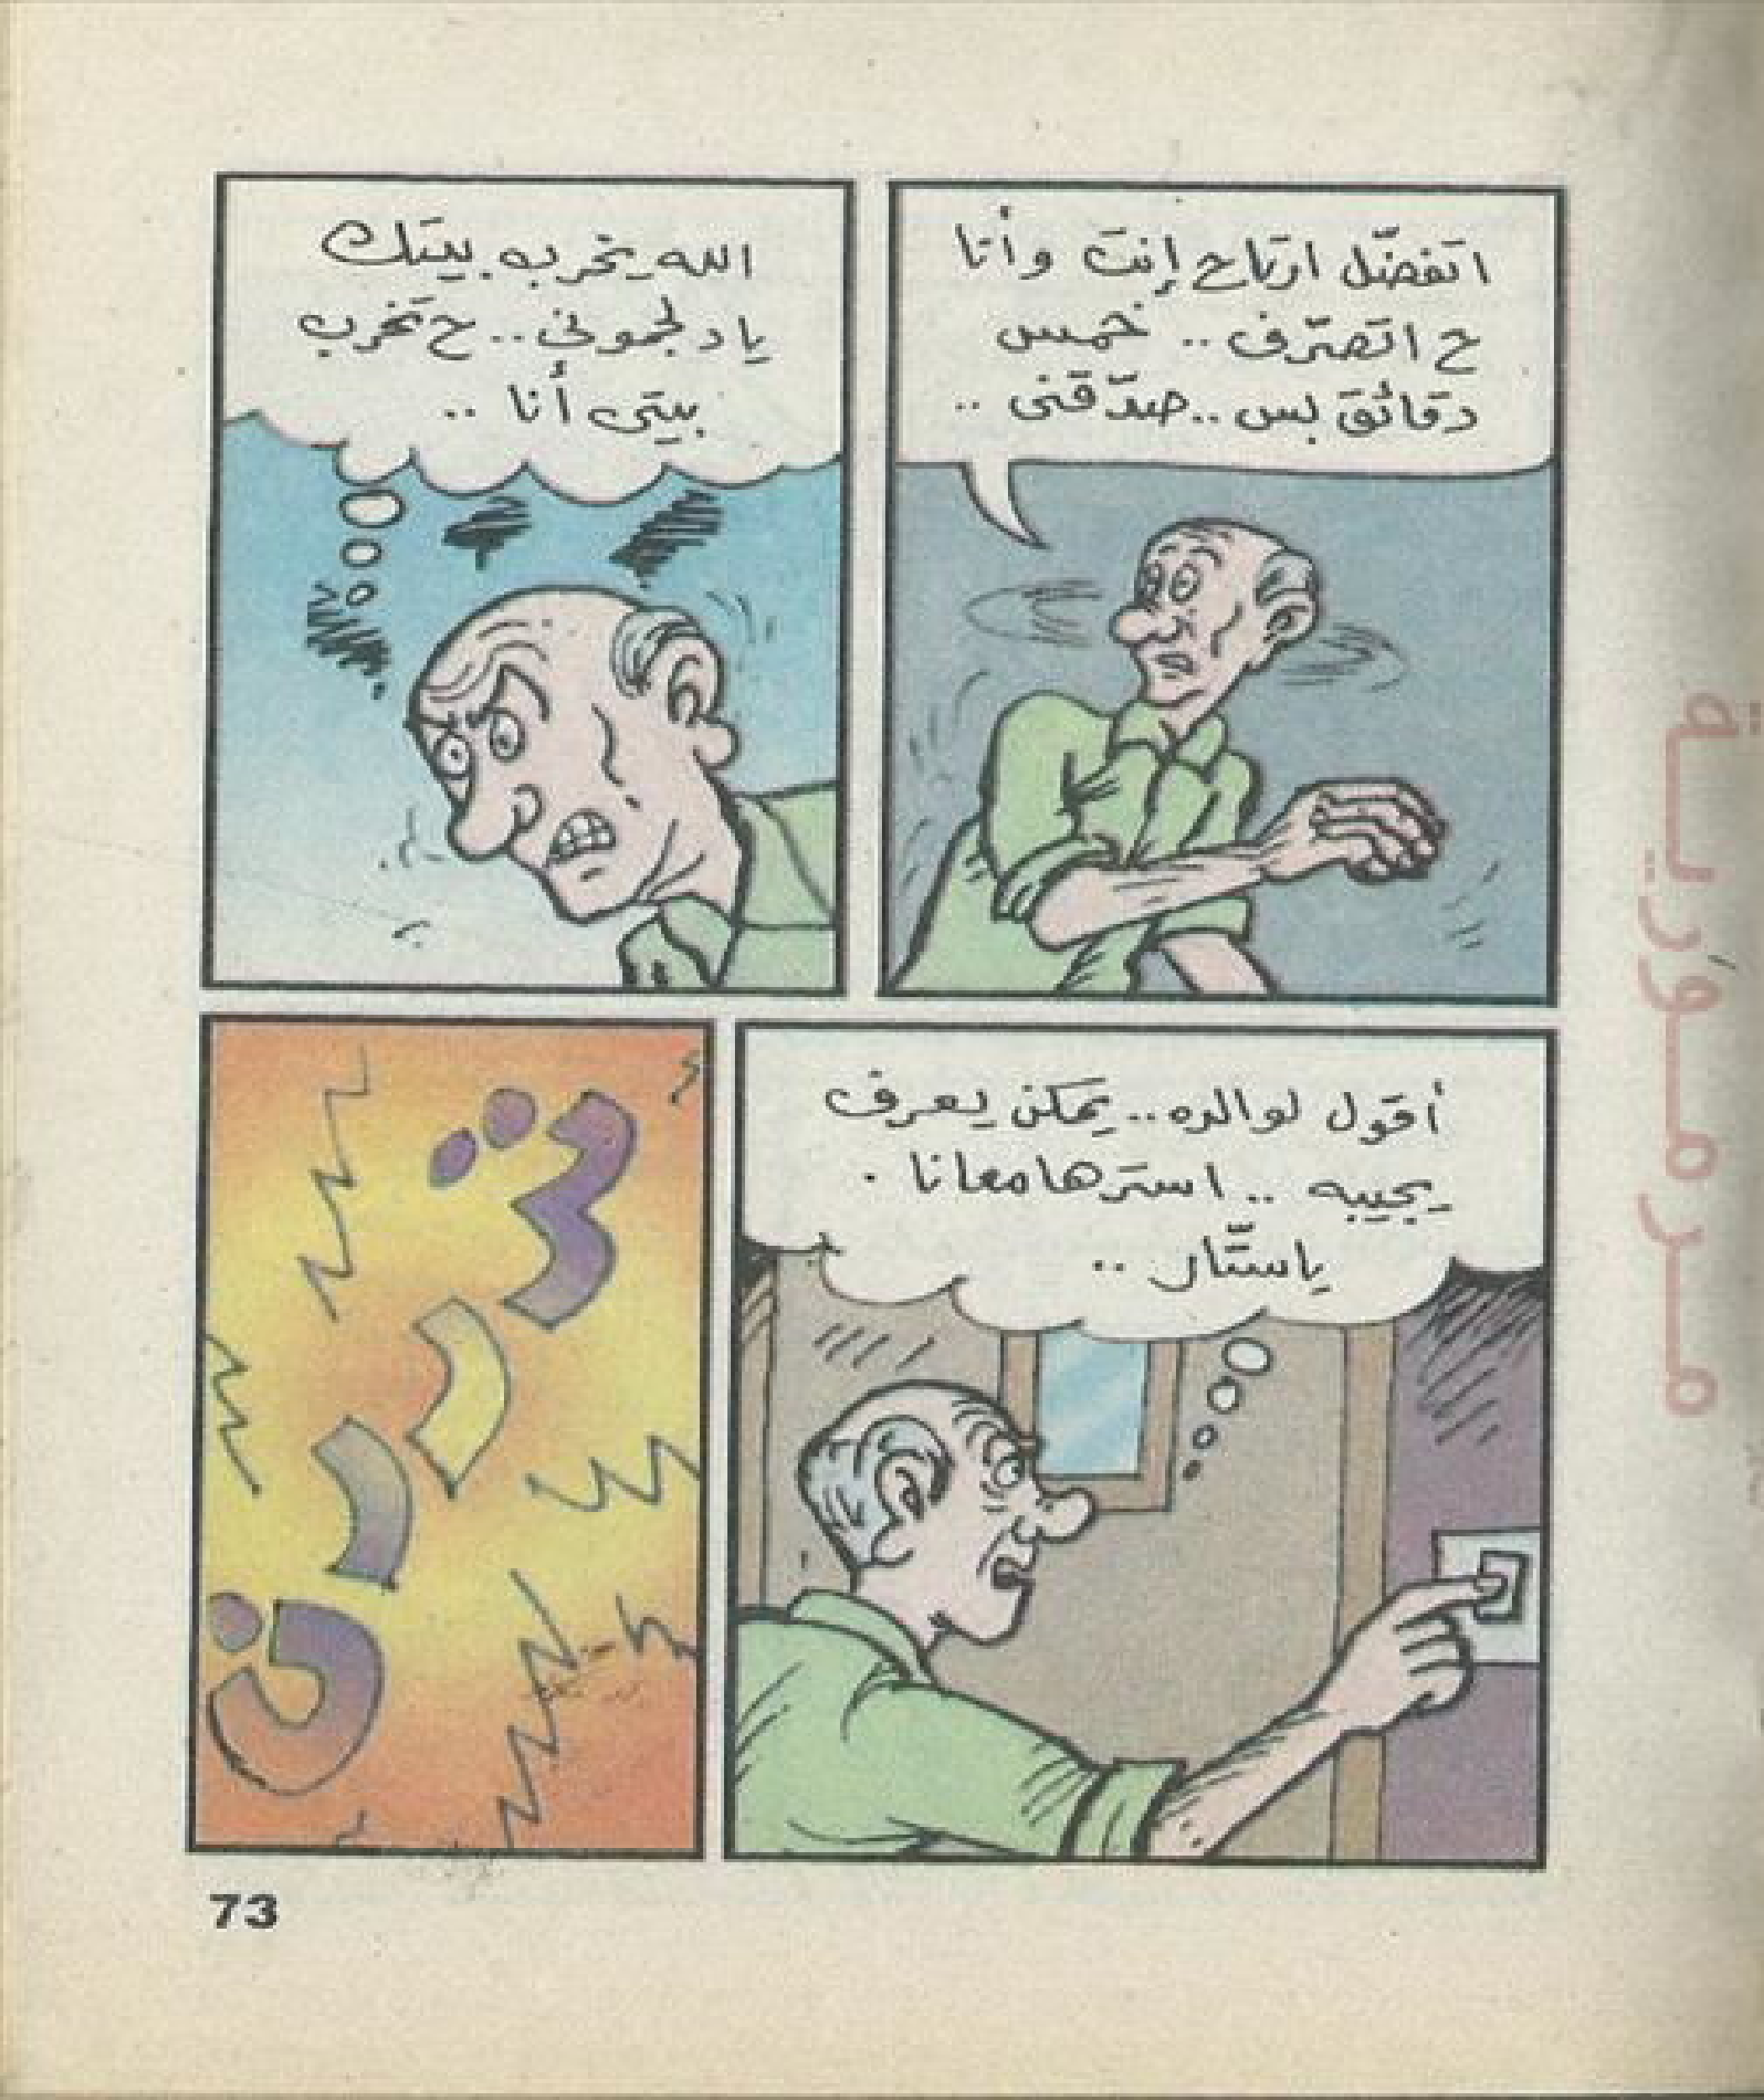 اتفضّل ارتاح إنت وأنا
ح اتصرّف .. خمس
دقائق بس .. صدّقنى ..
الله يخرب بيتك
ياد لجمونى .. ح تخرب
بيتى أنا ..
أقول لوالده .. يمكن يعرف
يجيبه .. استرها معانا .
ياستّار ..
تررن
73
مرمورية